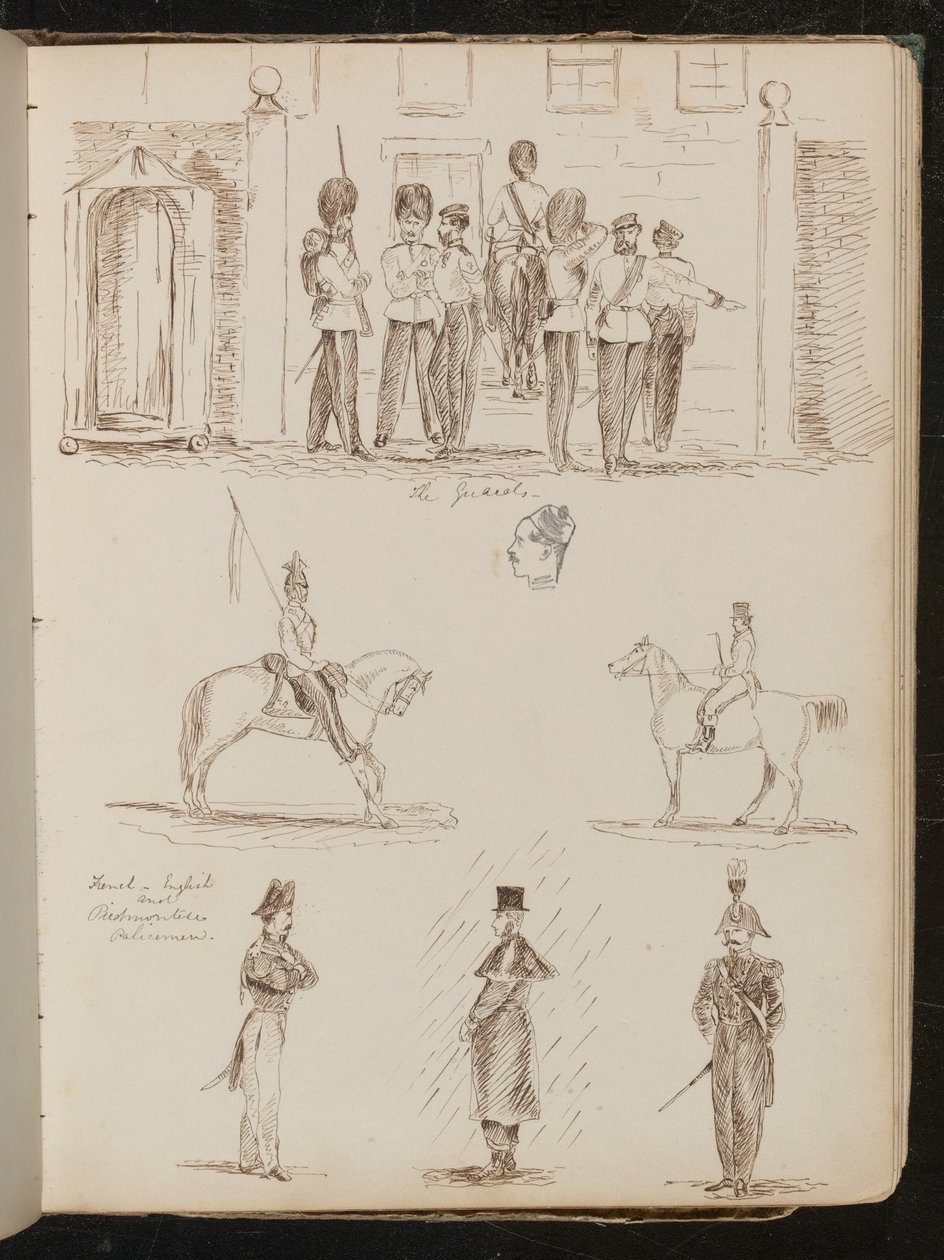 The Guards -
French - English
and
Piedmontese
Policemen.